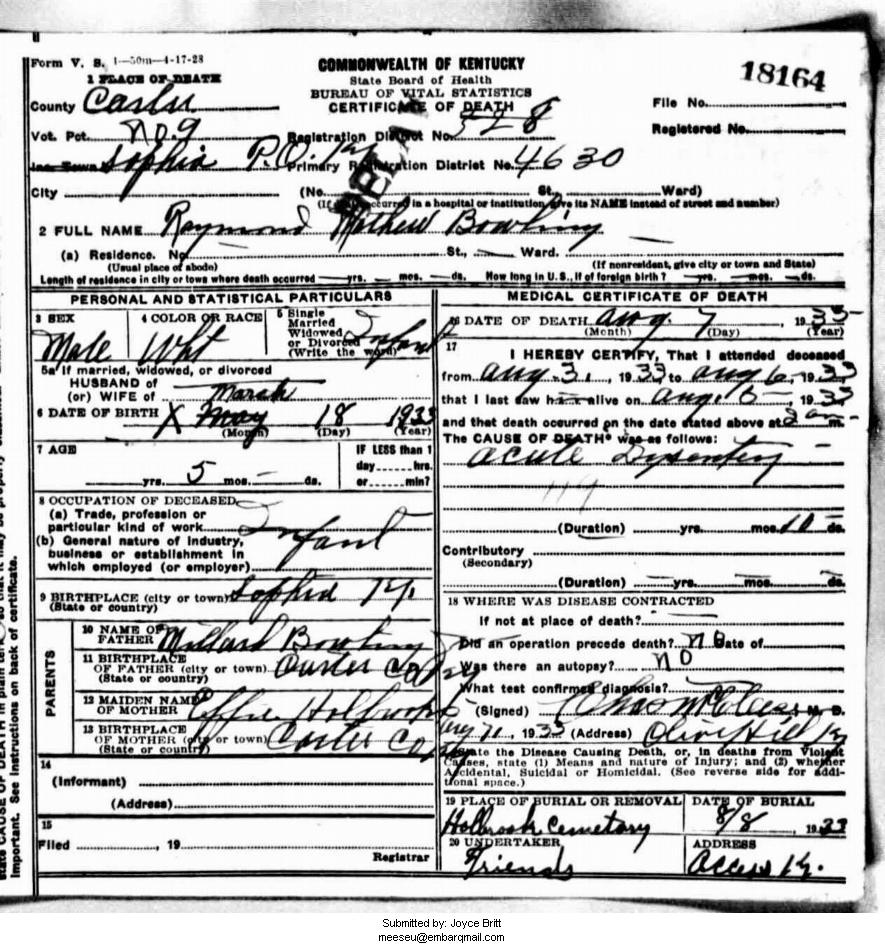 Form V. S. 1—50m—4-17-28
COMMONWEALTH OF KENTUCKY
State Board of Health
BUREAU OF VITAL STATISTICS
CERTIFICATE OF DEATH
18164
1 PLACE OF DEATH
County Carter
File No.
Vot. Pct. No. 9
Registration District No. 528
Registered No.
Inc. Town Sophia P.O. Ky
Primary Registration District No. 4630
City (No. St., Ward)
(If death occurred in a hospital or institution, give its NAME instead of street and number)
2 FULL NAME Raymond Mathew Bowling
(a) Residence. No. St., Ward.
(Usual place of abode) (If nonresident, give city or town and State)
Length of residence in city or town where death occurred yrs. mos. ds. How long in U. S., if of foreign birth? yrs. mos. ds.
PERSONAL AND STATISTICAL PARTICULARS
3 SEX
Male
4 COLOR OR RACE
Wht
5 Single
Married
Widowed
or Divorced
(Write the word)
Infant
5a If married, widowed, or divorced
HUSBAND of
(or) WIFE of
6 DATE OF BIRTH X May 18 1933
(Month) (Day) (Year)
7 AGE
yrs. 5 mos. — ds.
IF LESS than 1
day hrs.
or min?
8 OCCUPATION OF DECEASED
(a) Trade, profession or
particular kind of work
(b) General nature of industry,
business or establishment in
which employed (or employer)
Infant
9 BIRTHPLACE (city or town) Sophia Ky.
(State or country)
PARENTS
10 NAME OF
FATHER Millard Bowling
11 BIRTHPLACE
OF FATHER (city or town) Carter Co Ky
(State or country)
12 MAIDEN NAME
OF MOTHER Effie Holbrook
13 BIRTHPLACE
OF MOTHER (city or town) Carter Co Ky
(State or country)
14
(Informant)
(Address)
15
Filed , 19
Registrar
MEDICAL CERTIFICATE OF DEATH
16 DATE OF DEATH Aug. 7 , 1933
(Month) (Day) (Year)
17
I HEREBY CERTIFY, That I attended deceased
from Aug. 31, 1933 to Aug 6, 1933
that I last saw h alive on Aug. 6, 1933
and that death occurred on the date stated above at 2 am m.
The CAUSE OF DEATH* was as follows:
Acute Dysentery
119
(Duration) yrs. mos. 10 ds.
Contributory
(Secondary)
(Duration) yrs. mos. ds.
18 WHERE WAS DISEASE CONTRACTED
If not at place of death?
Did an operation precede death? No Date of
Was there an autopsy? No
What test confirmed diagnosis?
(Signed) Chas , M. D.
, 1933 (Address) Olive Hill Ky
*State the Disease Causing Death, or, in deaths from Violent
Causes, state (1) Means and nature of Injury; and (2) whether
Accidental, Suicidal or Homicidal. (See reverse side for addi-
tional space.)
19 PLACE OF BURIAL OR REMOVAL
Holbrook Cemetary
DATE OF BURIAL
8/8 1933
20 UNDERTAKER
Friends
ADDRESS
Access Ky.
state CAUSE OF DEATH in plain
Important. See instructions on back of certificate.
Submitted by: Joyce Britt
meeseu@embarqmail.com